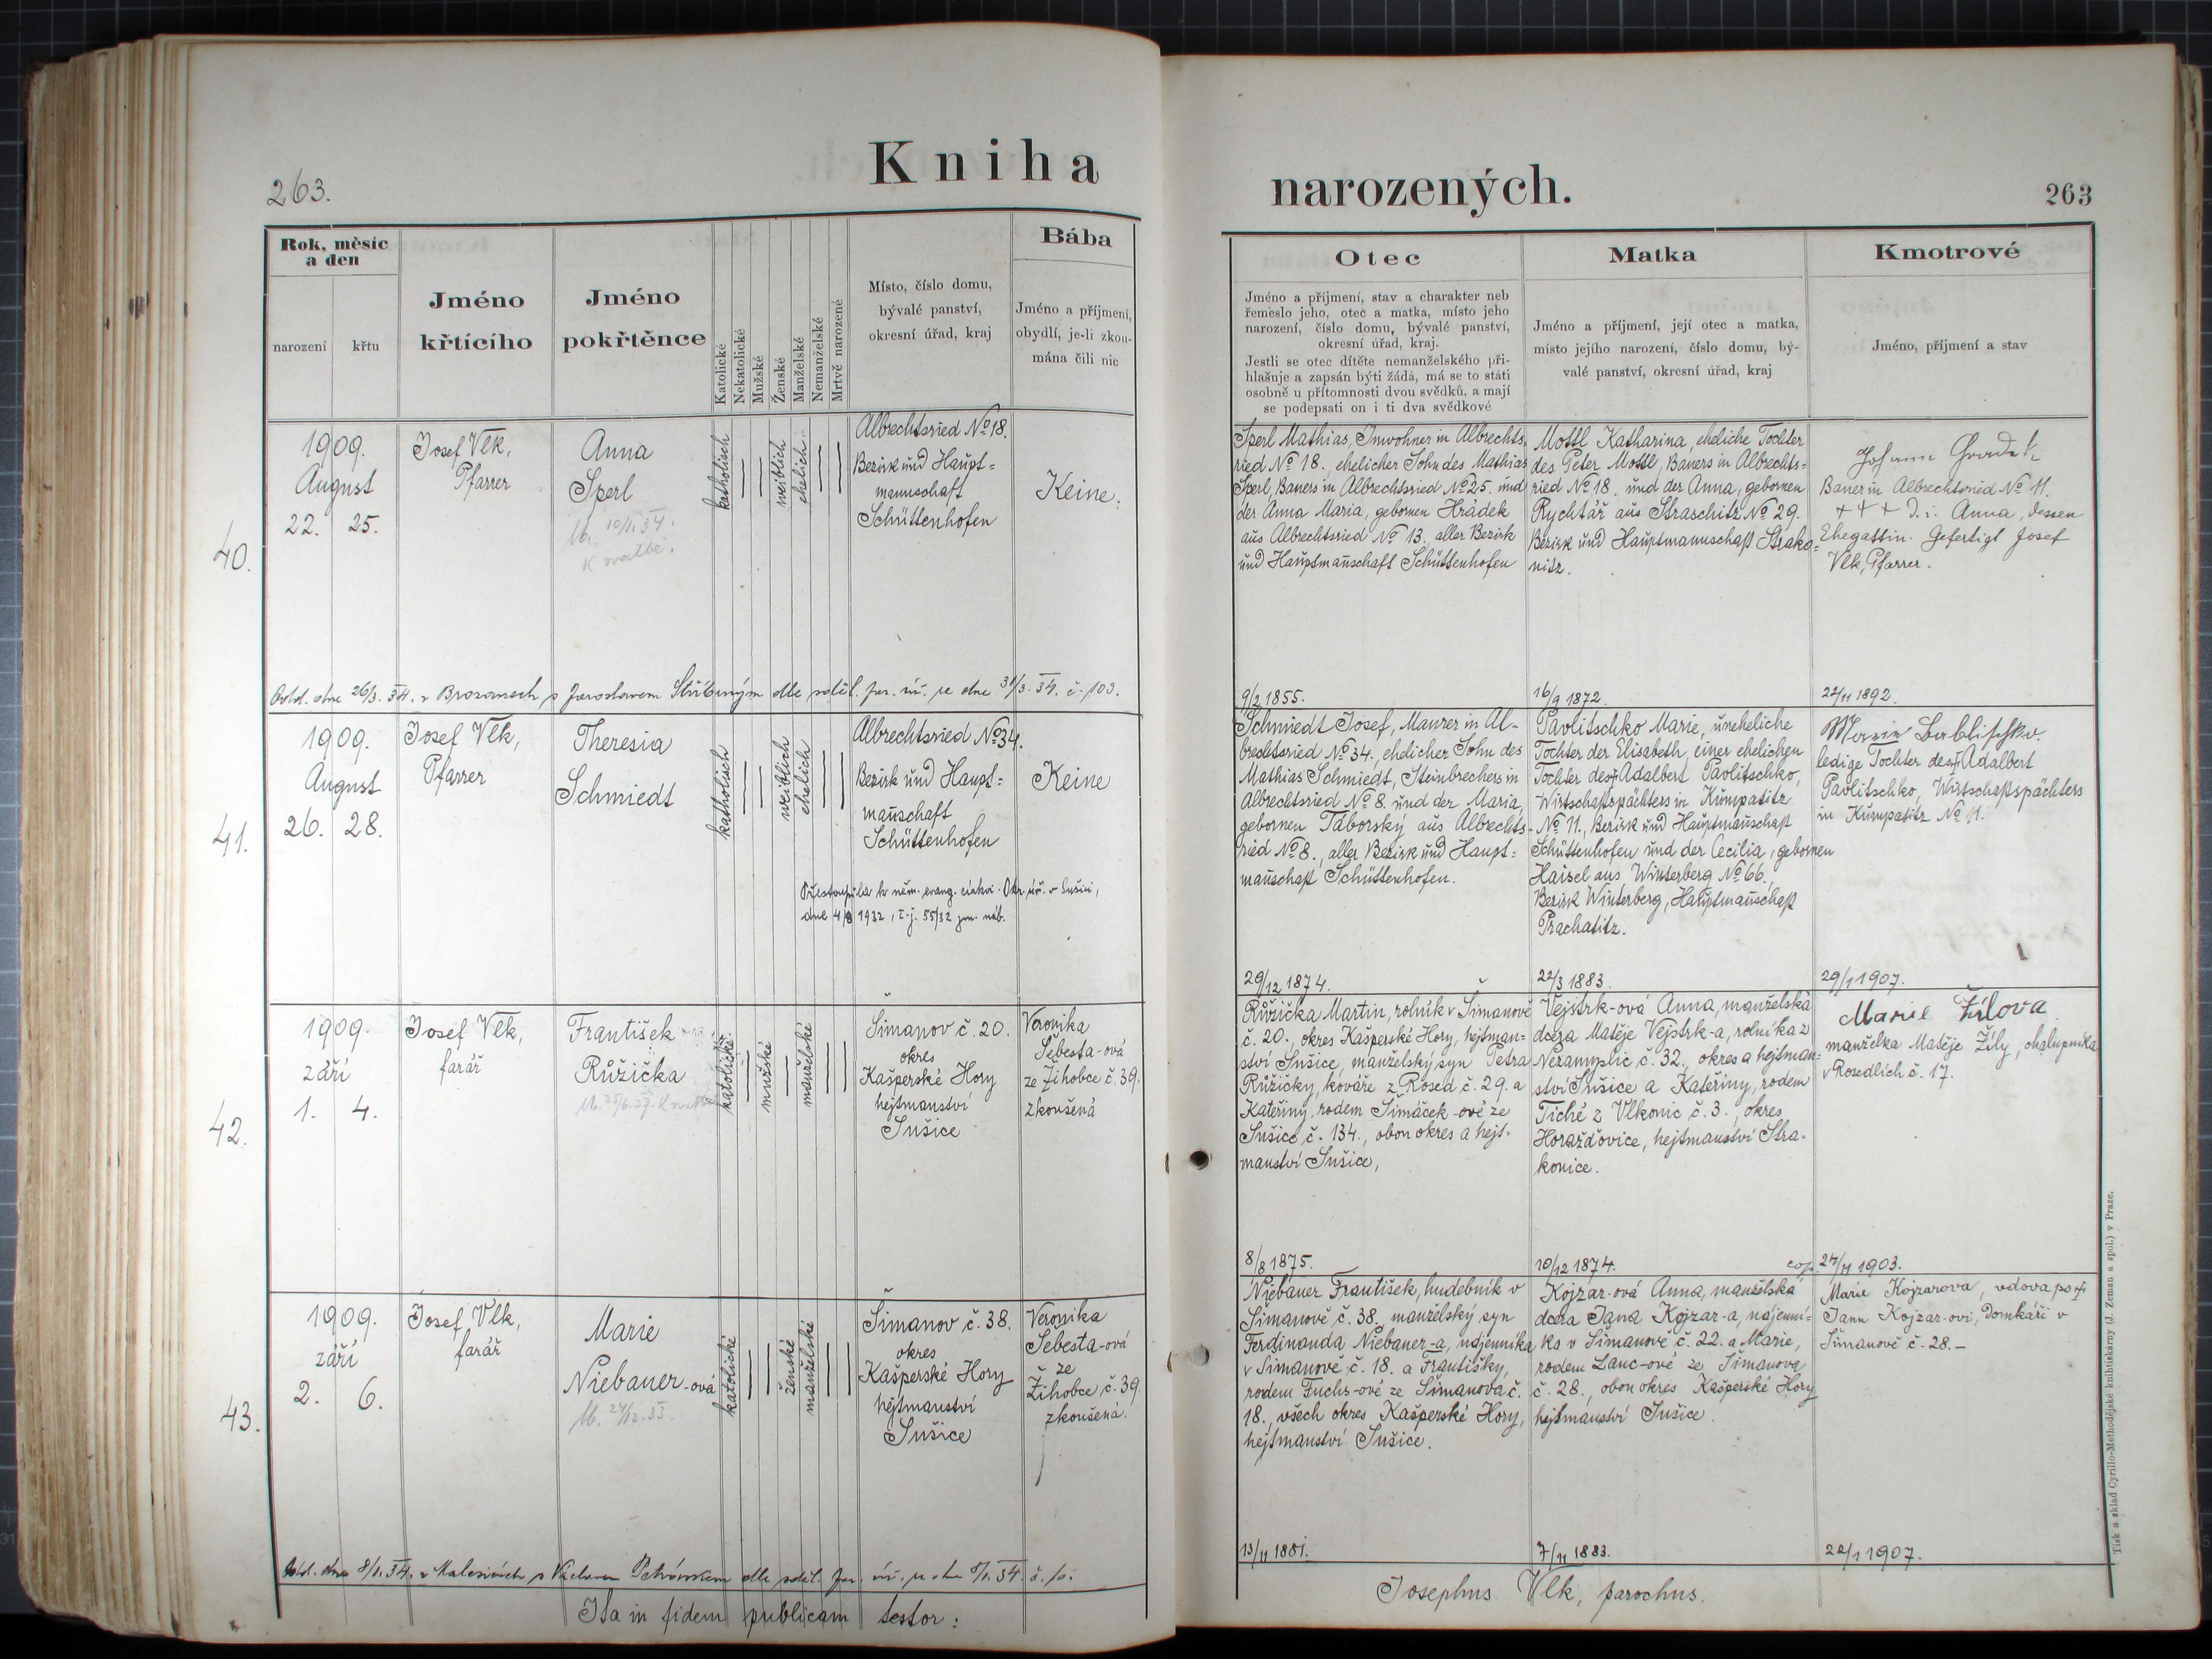 263.
Kniha
Rok, měsíc
a den
narození
křtu
Jméno
křtícího
Jméno
pokřtěnce
Katolické
Nekatolické
Mužské
Ženské
Manželské
Nemanželské
Mrtvě narozené
Místo, číslo domu,
bývalé panství,
okresní úřad, kraj
Bába
Jméno a příjmení,
obydlí, je-li zkou-
mána čili nic
40.
1909.
August
22. 25.
Josef Vlk,
Pfarrer
Anna
Sperl
katholisch
weiblich
ehelich
Albrechtsried No 18.
Bezirk und Haupt=
mannschaft
Schüttenhofen
Keine.
Odd. dne 26/3. 34. v Brozanech s Jaroslavem Stříbrným dle sděl. far. úř. ze dne 31/3. 34. č. 103.
41.
1909.
August
26. 28.
Josef Vlk,
Pfarrer
Theresia
Schmiedt
katholisch
weiblich
ehelich
Albrechtsried No 34.
Bezirk und Haupt=
mañschaft
Schüttenhofen
Keine
Přestoupila k něm. evang. církvi. Okr. úř. v Sušici,
dne 4/8 1932, č.j. 55/32 zm. náb.
42.
1909.
září
1. 4.
Josef Vlk,
farář
František
Růžička
katolické
mužské
manželské
Šimanov č. 20.
okres
Kašperské Hory
hejtmanství
Sušice
Veronika
Šebesta-ová
ze Žihobce č. 39.
zkoušená
43.
1909.
září
2. 6.
Josef Vlk,
farář
Marie
Niebauer-ová
katolické
ženské
manželské
Šimanov č. 38.
okres
Kašperské Hory
hejtmanství
Sušice
Veronika
Šebesta-ová
ze
Žihobce č. 39.
zkoušená.
Odd. dne 8/1. 34. v Malesicích s Václavem dle sděl. far. úř. ze dne 8/1. 34. č.
Ita in fidem publicam testor:
narozených.
263
Otec
Jméno a příjmení, stav a charakter neb
řemeslo jeho, otec a matka, místo jeho
narození, číslo domu, bývalé panství,
okresní úřad, kraj.
Jestli se otec dítěte nemanželského při-
hlašuje a zapsán býti žádá, má se to státi
osobně u přítomnosti dvou svědků, a mají
se podepsati on i ti dva svědkové
Matka
Jméno a příjmení, její otec a matka,
místo jejího narození, číslo domu, bý-
valé panství, okresní úřad, kraj
Kmotrové
Jméno, příjmení a stav
Sperl Mathias, Inwohner in Albrechts-
ried No 18., ehelicher Sohn des Mathias
Sperl, Bauers in Albrechtsried No 25. und
der Anna Maria, gebornen Hrádek
aus Albrechtsried No 13., aller Bezirk
und Hauptmañschaft Schüttenhofen
9/2 1855.
Mottl Katharina, eheliche Tochter
des Peter Mottl, Bauers in Albrechts=
ried No 18. und der Anna, gebornen
Rychtář aus Straschitz No 29.
Bezirk und Hauptmannschaft Strako=
nitz.
16/9 1872.
Johann Gradek
Bauer in Albrechtsried No 11.
+ + + d. i. Anna, dessen
Ehegattin. Gefertigt Josef
Vlk, Pfarrer.
22/11 1892.
Schmiedt Josef, Maurer in Al-
brechtsried No 34., ehelicher Sohn des
Mathias Schmiedt, Steinbrechers in
Albrechtsried No 8. und der Maria,
gebornen Táborský aus Albrechts-
ried No 8., aller Bezirk und Haupt=
mañschaft Schüttenhofen.
29/12 1874.
Pavlitschko Marie, uneheliche
Tochter der Elisabeth, einer ehelichen
Tochter des † Adalbert Pavlitschko,
Wirtschaftspächters in Kumpatitz
No 11., Bezirk und Hauptmañschaft
Schüttenhofen und der Cecilia, gebornen
Haisel aus Winterberg No 66,
Bezirk Winterberg, Hauptmañschaft
Prachatitz.
22/3 1883.
ledige Tochter des † Adalbert
Pavlitschko, Wirtschaftspächters
in Kumpatitz No 11.
29/1 1907.
Růžička Martin, rolník v Šimanově
č. 20., okres Kašperské Hory, hejtman=
ství Sušice, manželský syn Petra
Růžičky, kováře z Rosed č. 29. a
Kateřiny, rodem Šimáček-ové ze
Sušice č. 134., obou okres a hejt-
manství Sušice,
8/8 1875.
Vejstrk-ová Anna, manželská
dcera Matěje Vejstrk-a, rolníka z
Nezamyslic č. 32., okres a hejtman=
ství Sušice a Kateřiny, rodem
Tiché z Vlkonic č. 3., okres
Horažďovice, hejtmanství Stra-
konice.
10/12 1874.
Marie Žílova
manželka Matěje Žíly, chalupníka
v Rosedlích č. 17.
cop. 24/11 1903.
Niebauer František, hudebník v
Šimanově č. 38. manželský syn
Ferdinanda Niebauer-a, nájemníka
v Šimanově č. 18. a Františky,
rodem Fuchs-ové ze Šimanova č.
18., všech okres Kašperské Hory,
hejtmanství Sušice.
13/11 1881.
Kojzar-ová Anna, manželská
dcera Jana Kojzar-a, nájemní-
ka v Šimanově č. 22. a Marie,
rodem Lanc-ové ze Šimanova
č. 28., obou okres Kašperské Hory
hejtmanství Sušice.
7/11 1883.
Marie Kojzarova, vdova po †
Janu Kojzar-ovi, domkáři v
Šimanově č. 28.–
22/1 1907.
Josephus Vlk, parochus.
Tisk a sklad Cyrillo-Methodějské knihtiskárny (J. Zeman a spol.) v Praze.